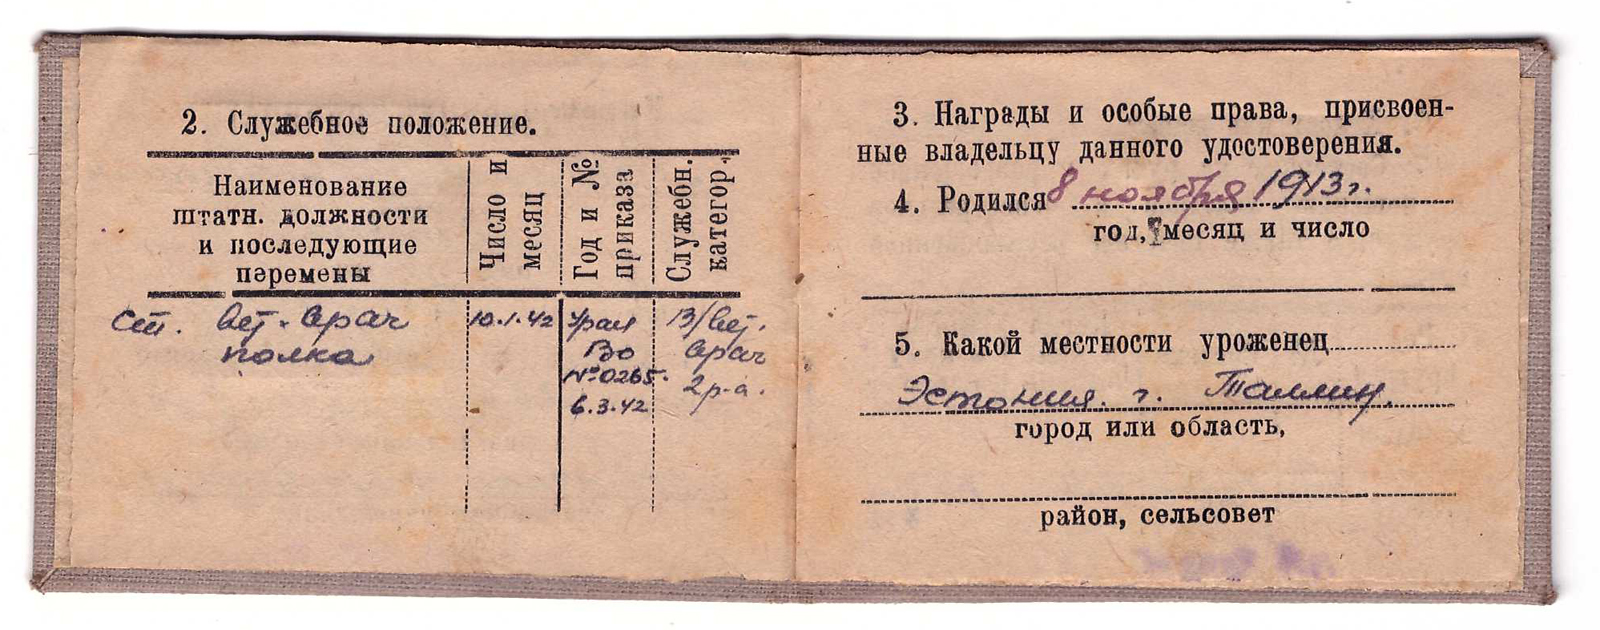 2. Служебное положение.
Наименование
штатн. должности
и последующие
перемены
Число и
месяц
Год и №
приказа
Служебн.
категор.
Ст. вет. врач
полка
10.1.42
Урал
ВО
№0265.
6.3.42
В/вет.
врач
2 р-а.
3. Награды и особые права, присвоен-
ные владельцу данного удостоверения.
4. Родился 8 ноября 1913 г.
год, месяц и число
5. Какой местности уроженец
Эстония. г. Таллин.
город или область,
район, сельсовет